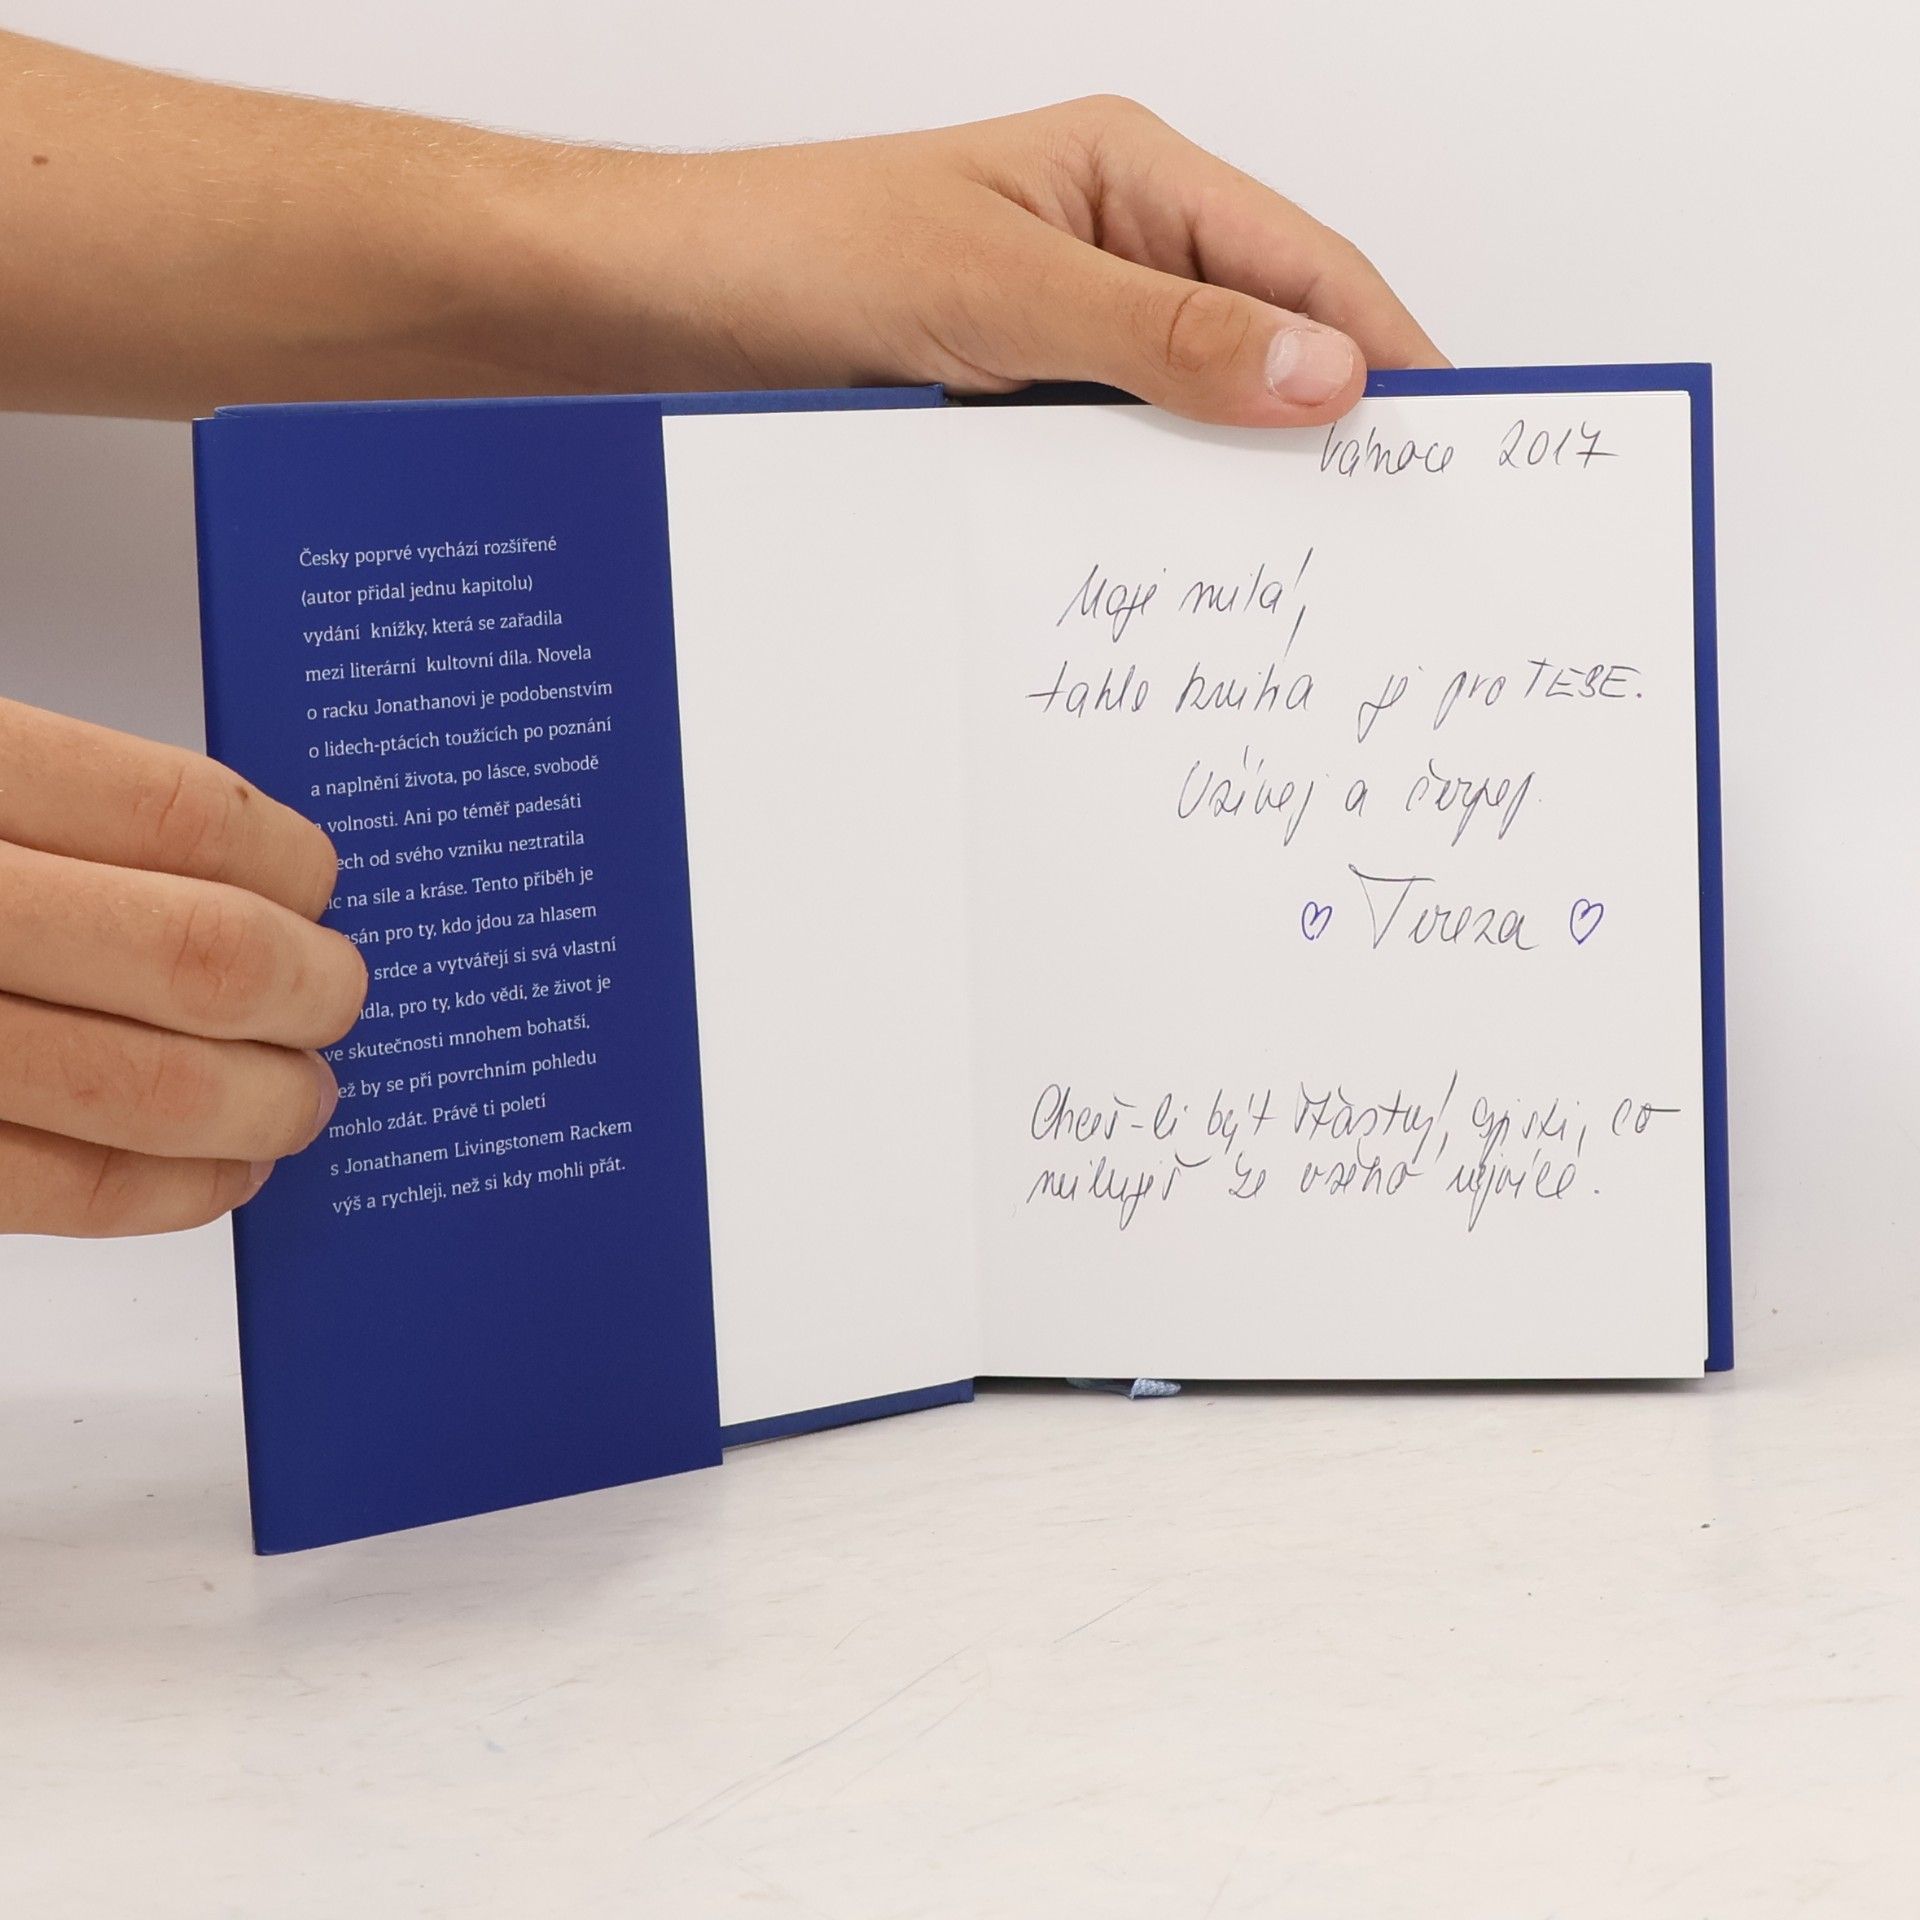 Česky poprvé vychází rozšířené
(autor přidal jednu kapitolu)
vydání knížky, která se zařadila
mezi literární kultovní díla. Novela
o racku Jonathanovi je podobenstvím
o lidech-ptácích toužících po poznání
a naplnění života, po lásce, svobodě
volnosti. Ani po téměř padesáti
ech od svého vzniku neztratila
ic na síle a kráse. Tento příběh je
sán pro ty, kdo jdou za hlasem
srdce a vytvářejí si svá vlastní
idla, pro ty, kdo vědí, že život je
ve skutečnosti mnohem bohatší,
ež by se při povrchním pohledu
mohlo zdát. Právě ti poletí
s Jonathanem Livingstonem Rackem
výš a rychleji, než si kdy mohli přát.
Vánoce 2017
Moje milá,
tahle kniha je pro TEBE.
Užívej a čerpej.
♡ Tereza ♡
Chceš-li být šťastný, zjisti, co
miluješ ze všeho nejvíce.